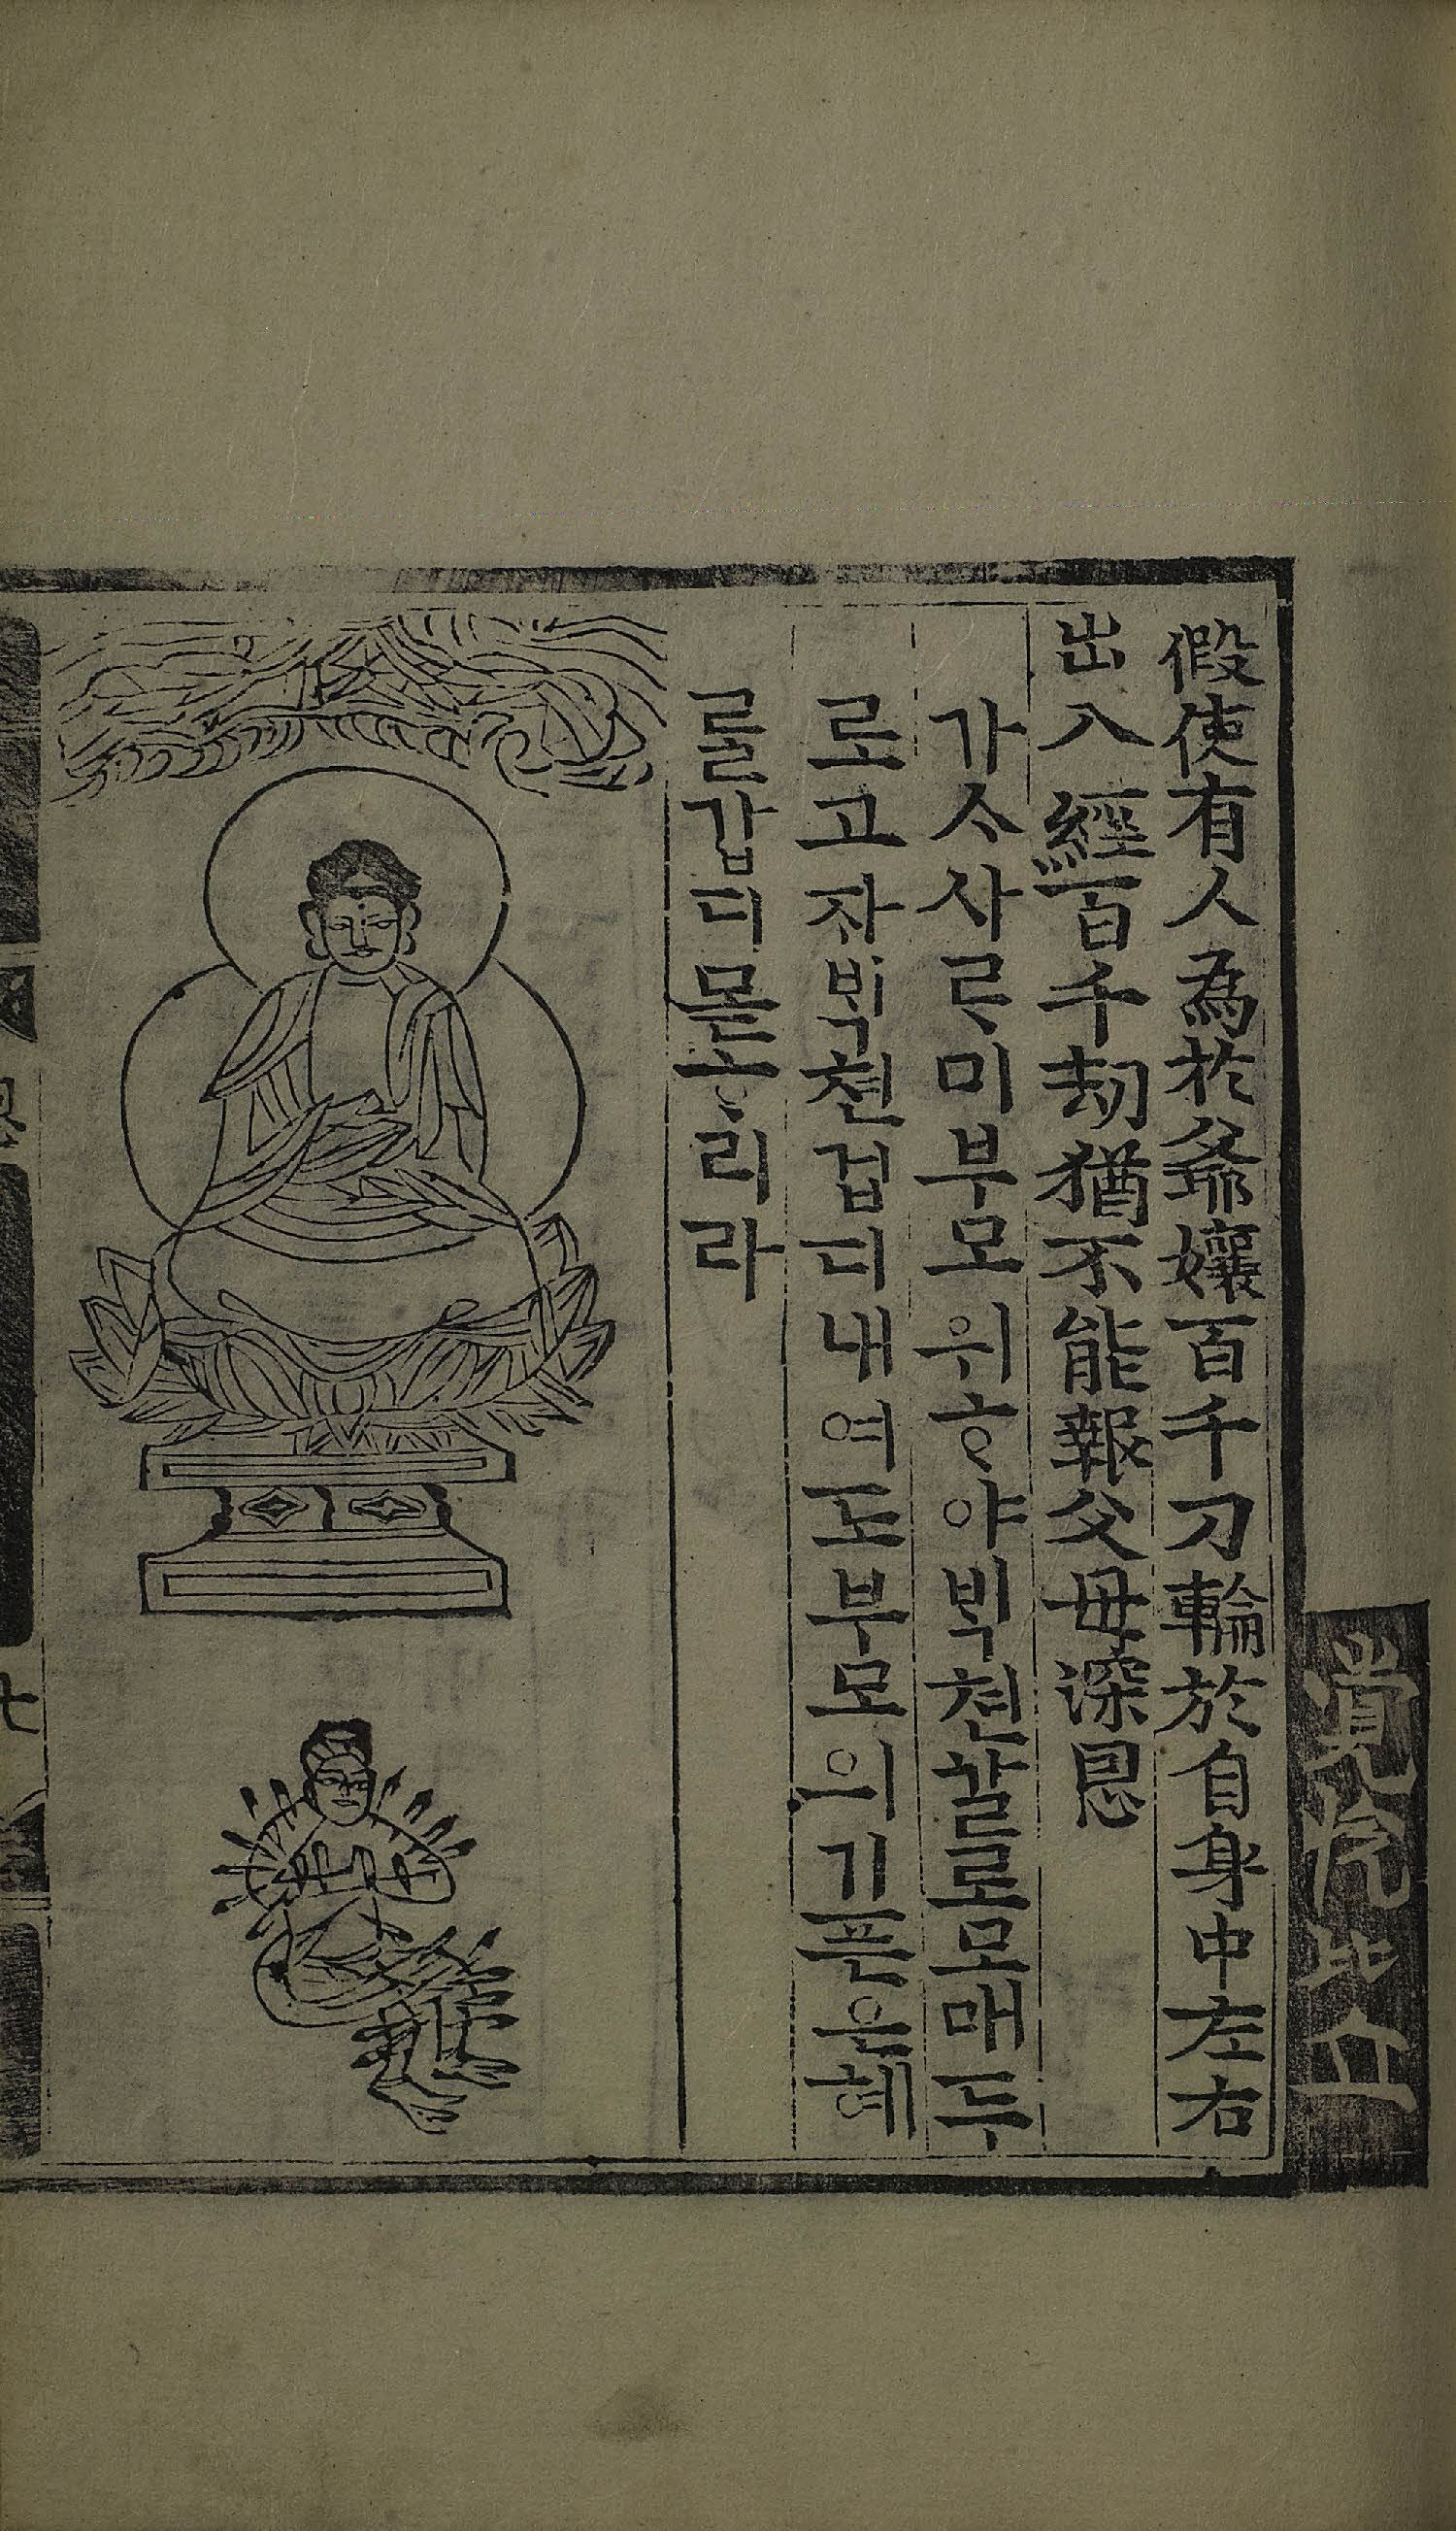 覺比丘
假使有人為於爺孃百千刀輪於自身中左右
出入經百千劫猶不能報父母深恩
가ᄉᆞ사ᄅᆞ미부모위ᄒᆞ야ᄇᆡᆨ쳔갈로모매두
로고자ᄇᆡᆨ쳔겁디내여도부모의기픈은혜
ᄅᆞᆯ갑디몯ᄒᆞ리라
七